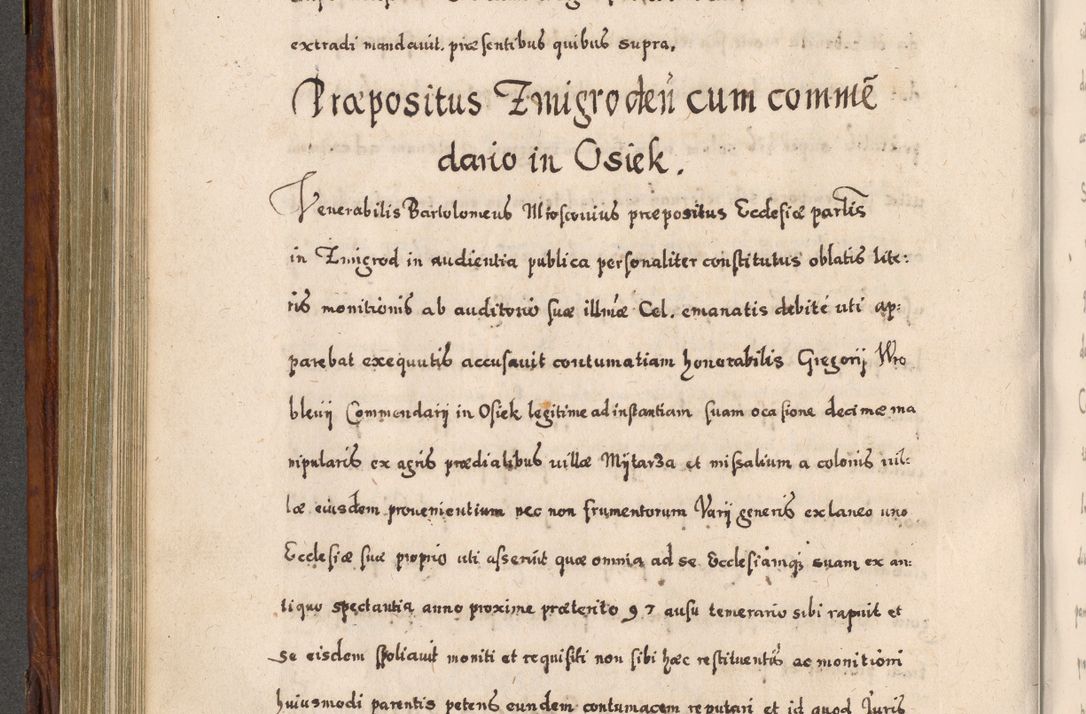 extradi mandavit. præsentibus quibus supra.
Præpositus Zmigroden̄ cum commē
dario in Osiek.
Venerabilis Bartolomeus Mroscovius præpositus Ecclesiæ partis
in Zmigrod in audientia publica personaliter constitutus oblatis lite:
ris monitionis ab auditorio suæ illmæ Cel. emanatis debite uti ap:
parebat exequutis accusavit contumatiam honorabilis Gregorij Wro
blevij Commendarij in Osiek legitime ad instantiam suam ocasione decimæ ma
nipularis ex agris prædialibus villæ Mÿtarza et missalium a colonis vil:
læ eiusdem provenientium nec non frumentorum Varij generis ex laneo uno
Ecclesiæ suæ proprio uti asseruit quæ omnia ad se Ecclesiamq; suam ex an:
tiquo spectantia anno proxime præterito 97 ausu temerario sibi rapuit et
se eisdem spoliavit moniti et requisiti non sibi hæc restituentis ac monitioni
huiusmodi parentis petens eundem contumacem reputari et id quod Juris